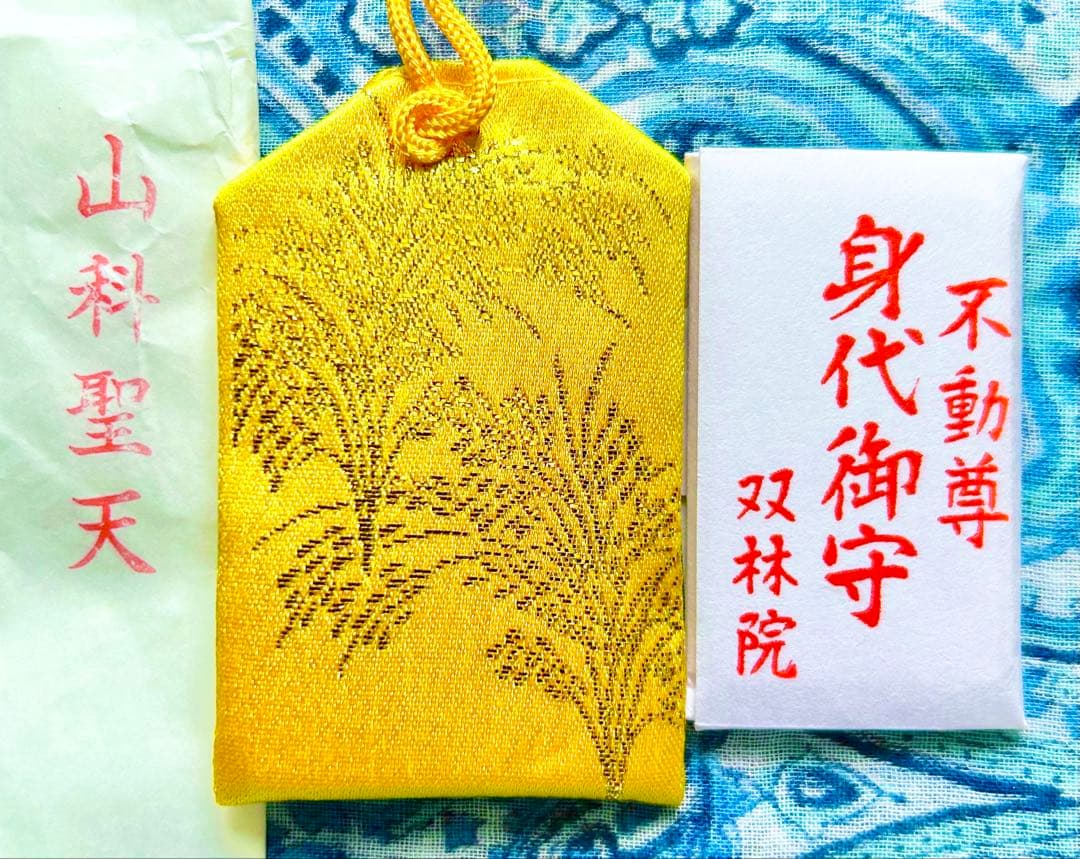 山科聖天
不動尊
身代御守
双林院